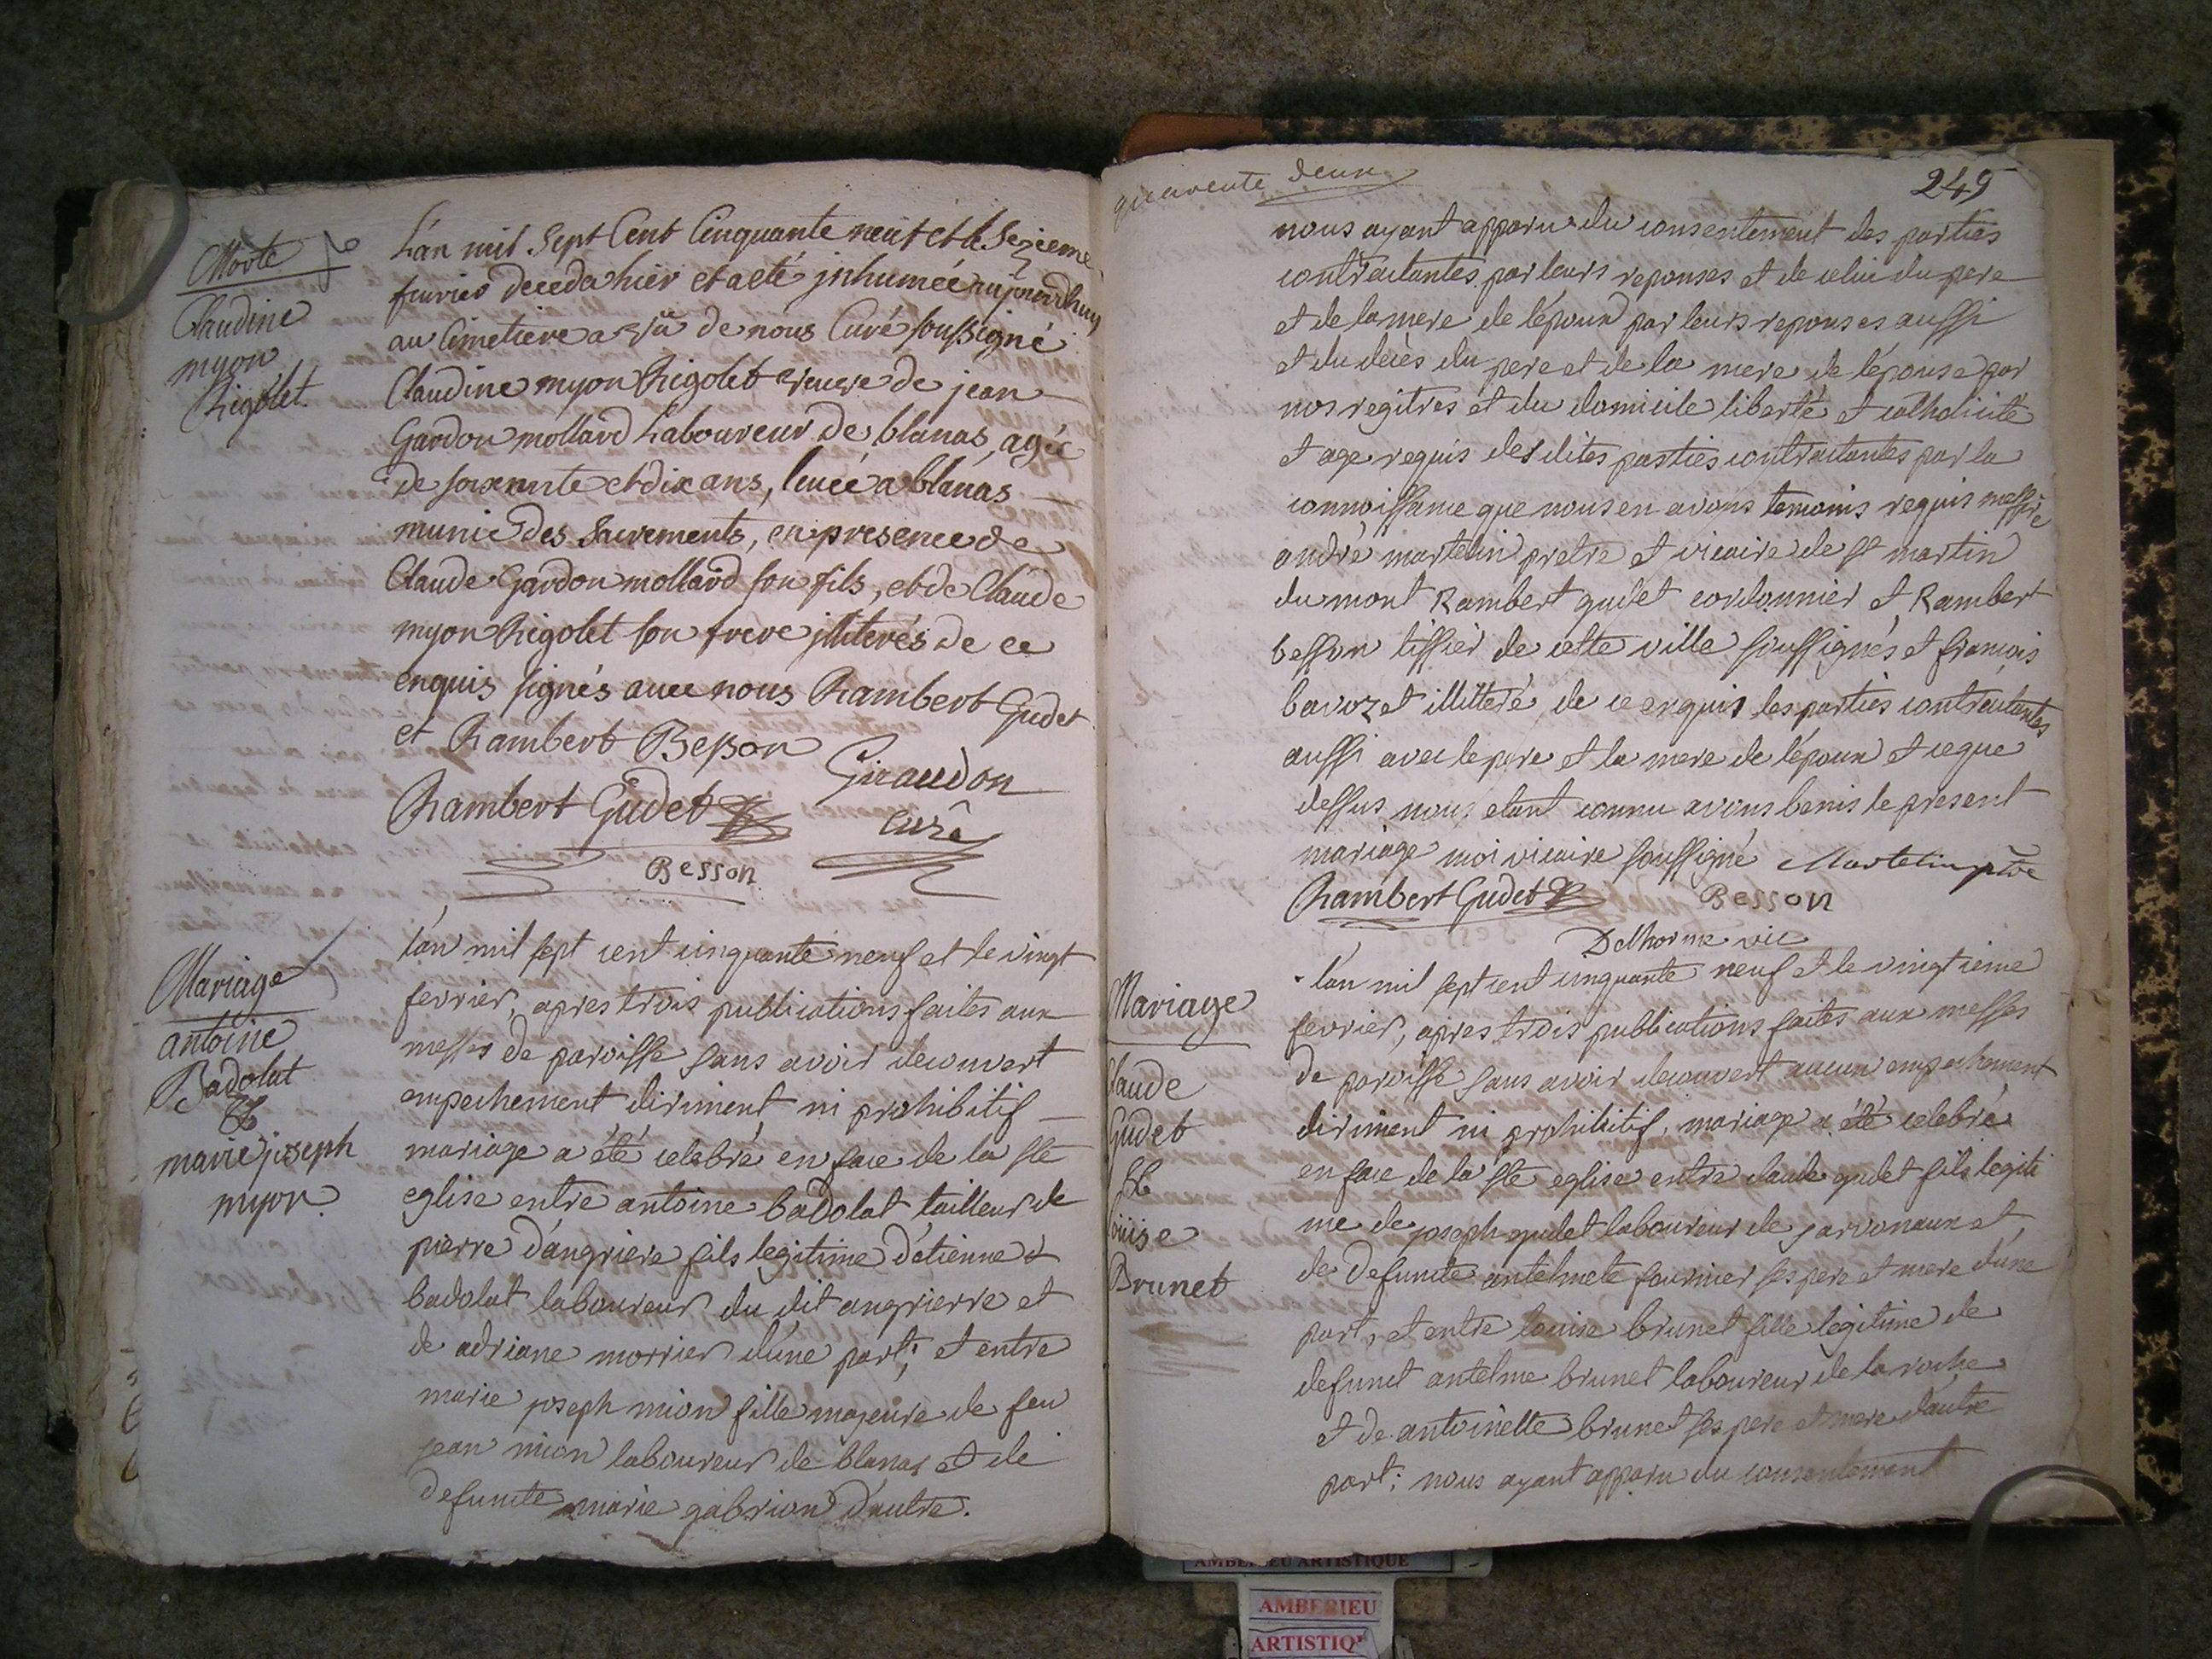 Morte
Claudine
myon
Rigolet.
L'an mil Sept Cent Cinquante neuf et le Sezieme
fevrier deceda hier et a eté inhumée aujourdhuy
au Cimetiere de nous Curé soussigné
Claudine myon Rigolet veuve de jean
Gardon mollard Laboureur de blanas, agée
de soixante et dix ans, levée a blanas
munie des Sacrements, en presence de
Claude Gardon mollard son fils, et de Claude
myon Rigolet son frere illiterés de ce
enquis signés avec nous Rambert Gudet
et Rambert Besson
Giraudon
Curé
Rambert Gudet
Besson
Mariage
antoine
Badolat
&
marie joseph
myon
l'an mil sept cent cinquante neuf et le vingt
fevrier, apres trois publications faites aux
messes de paroisse sans avoir decouvert
empechement diriment ni prohibitif
mariage a été celebré en face de la ste
eglise entre antoine badolat tailleur de
pierre d'angriere fils legitime d'etienne
badolat laboureur du dit angrierre et
de adriane morrier d'une part; et entre
marie joseph mion fille majeure de feu
jean mion laboureur de blanas et de
defunte marie gabrion d'autre.
quarente deux
249
nous ayant apparu du consentement des parties
contractantes par leurs reponses et de celui du pere
et de la mere de l'époux par leurs reponses aussi
et du décès du pere et de la mere de l'épouse par
nos regitres et du domicile liberté et catholicité
et age requis des dites parties contractantes par la
connoissance que nous en avons temoins requis messire
andré martelin pretre et vicaire de st martin
du mont Rambert gudet cordonnier et Rambert
besson tissier de cette ville soussignés et francois
bavozet illitteré de ce enquis les parties contractantes
aussi avec le pere et la mere de l'époux et ce que
dessus nous etant connu avons benis le present
mariage moi vicaire soussigné Martelin ptre
Rambert Gudet Besson
Delhorme vic
Mariage
claude
Gudet
&
louise
Brunet
l'an mil sept cent cinquante neuf et le vingtieme
fevrier, apres trois publications faites aux messes
de paroisse sans avoir decouvert aucun empechement
diriment ni prohibitif, mariage a été celebré
en face de la ste eglise entre claude gudet fils legiti
me de joseph gudet laboureur de jarvonaux et
de defunte antelmete fournier ses pere et mere d'une
part, et entre louise brunet fille legitime de
defunct antelme brunet laboureur de la roche
et de antoinette brunet ses pere et mere d'autre
part: nous ayant apparu du consentement
AMBERIEU ARTISTIQUE
AMBERIEU
ARTISTIQ